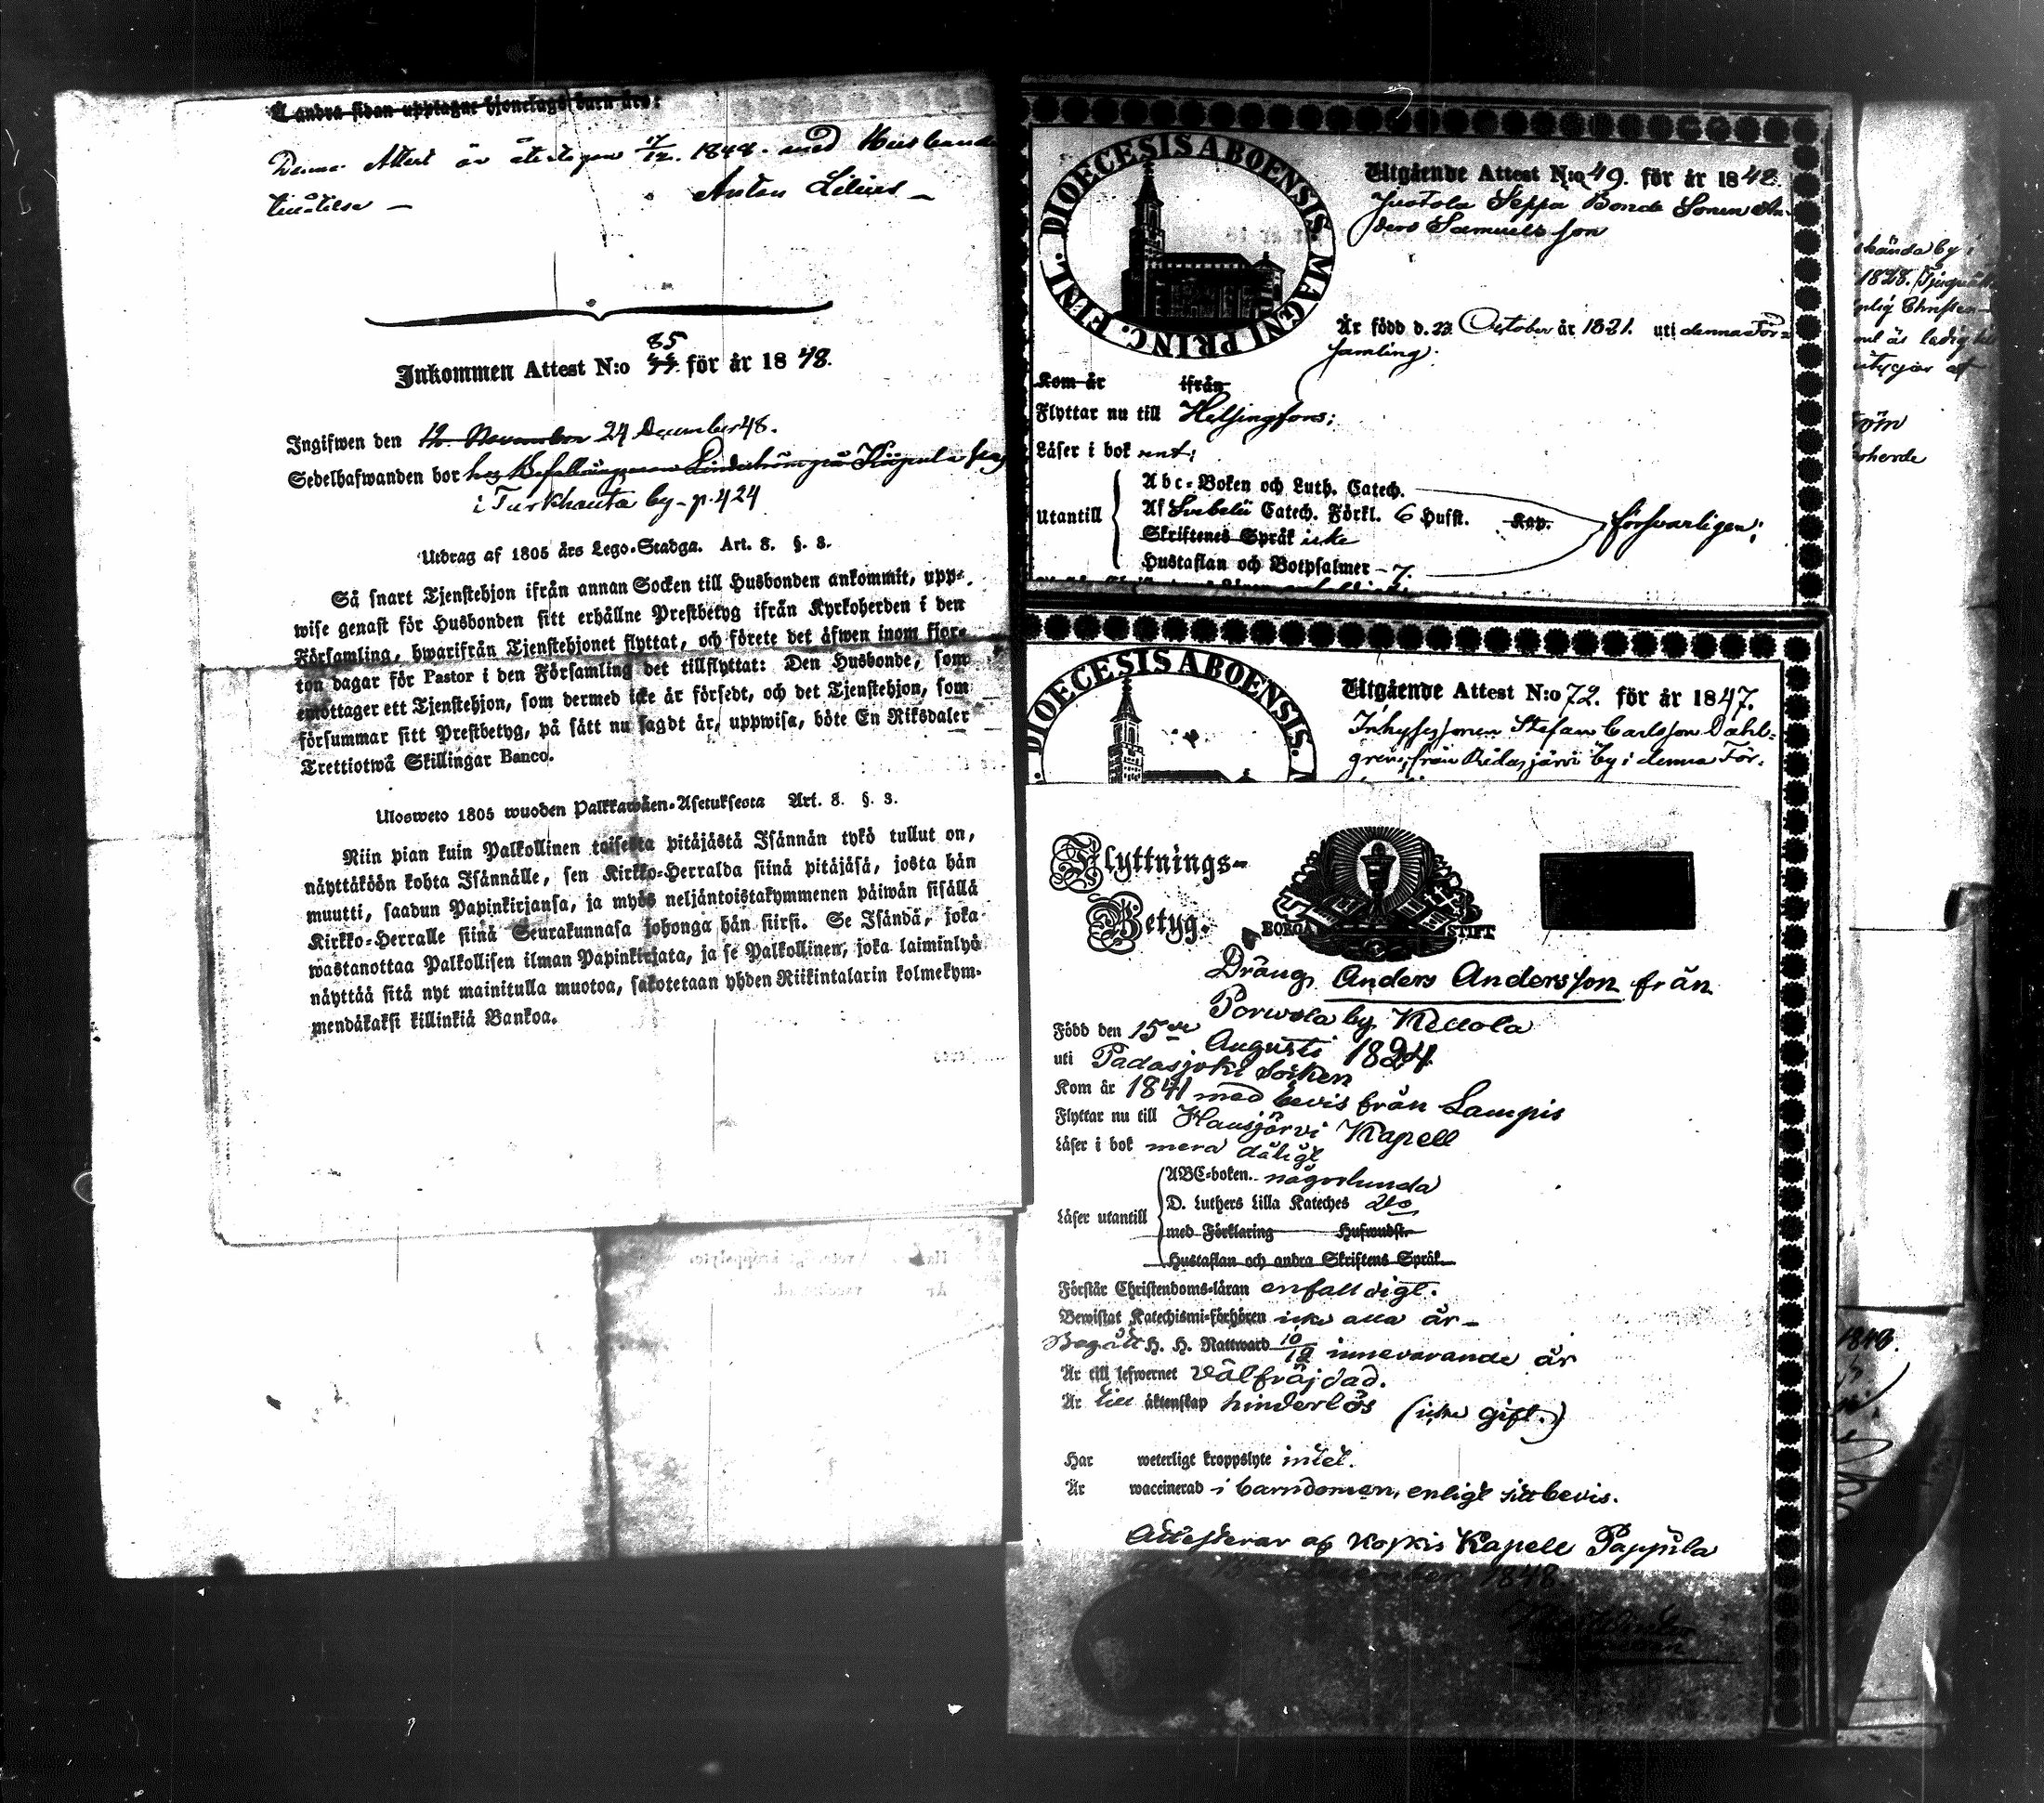 Å andra sidan upptagne hjonelags barn äro:
Denna Attest är återtagen 17/12. 1848. med Husbondens
tillåtelse —
Anton Lilius —
Inkommen Attest N:o 85 för år 1848.
Ingifwen den 12. November 24 December 48.
Sedelhafwanden bor hos
i Turkhauta by - p. 424
Utdrag af 1805 års Lego-Stadga. Art. 8. §. 3.
Så snart Tjenstehjon ifrån annan Socken till Husbonden ankommit, upp-
wise genast för Husbonden sitt erhållne Prestbetyg ifrån Kyrkoherden i den
Församling, hwarifrån Tjenstehjonet flyttat, och förete det äfwen inom fjor-
ton dagar för Pastor i den Församling det tillflyttat: Den Husbonde, som
emottager ett Tjenstehjon, som dermed icke är försedt, och det Tjenstehjon, som
försummar sitt Prestbetyg, på sätt nu sagdt är, uppwisa, böte En Riksdaler
Trettiotwå Skillingar Banco.
Ulosweto 1805 wuoden Palkkawäen-Asetuksesta Art. 8. §. 3.
Niin pian kuin Palkollinen toisesta pitäjästä Isännän tykö tullut on,
näyttäköön kohta Isännälle, sen Kirkko-Herralda siinä pitäjäsä, josta hän
muutti, saadun Papinkirjansa, ja myös neljäntoistakymmenen päiwän sisällä
Kirkko-Herralle siinä Seurakunnasa johonga hän siirsi. Se Isändä, joka
wastanottaa Palkollisen ilman Papinkirjata, ja se Palkollinen, joka laiminlyö
näyttää sitä nyt mainitulla muotoa, sakotetaan yhden Riikintalarin kolmekym-
mendäkaksi killinkiä Bankoa.
DIOECESIS ABOENSIS. MAGNI PRINC. FINL.
Utgående Attest N:o 49. för år 1848.
Juotola Seppä Bonde Sonen An-
ders Samuelsson
Är född d. 23 October år 1821. uti denna För-
samling.
Kom år ifrån
Flyttar nu till Helsingfors;
Läser i bok rent;
Utantill
Abc-Boken och Luth. Catech.
Af Svebelii Catech. Förkl. 6 Hufst. Kap.
Skriftenes Språk icke
Hustaflan och Botpsalmer - 7.
försvarligen;
DIOECESIS ABOENSIS.
Utgående Attest N:o 72. för år 1847.
Inhysesonen Stefan Carlsson Dahl-
gren, från Ridasjärvi by i denna För-
Flyttnings-
Betyg.
BORGÅ STIFT
Dräng Anders Andersson från
Porwola by Killola
Född den 15de Augusti 1824
uti Padasjoki Socken
Kom år 1841 med bevis från Lampis
Flyttar nu till Hausjärvi Kapell
Läser i bok mera dåligt
Läser utantill
ABC-boken. någorlunda
D. Luthers Lilla Kateches do
med Förklaring Hufwudst.
Hustaflan och andra Skriftens Språk
Förstår Christendoms-läran enfalldigt.
Bewistat Katechismi-förhören icke alla år -
Begått H. H. Nattward 10/12 innevarande år
Är till lefwernet välfräjdad.
Är till äktenskap hinderlös (icke gift.)
Har weterligt kroppslyte intet.
Är waccinerad i barndomen, enligt sitt bevis.
Attesterar af Koskis Kapell Pappila
1848
skända by i
1828.
ledig
herde
1848.